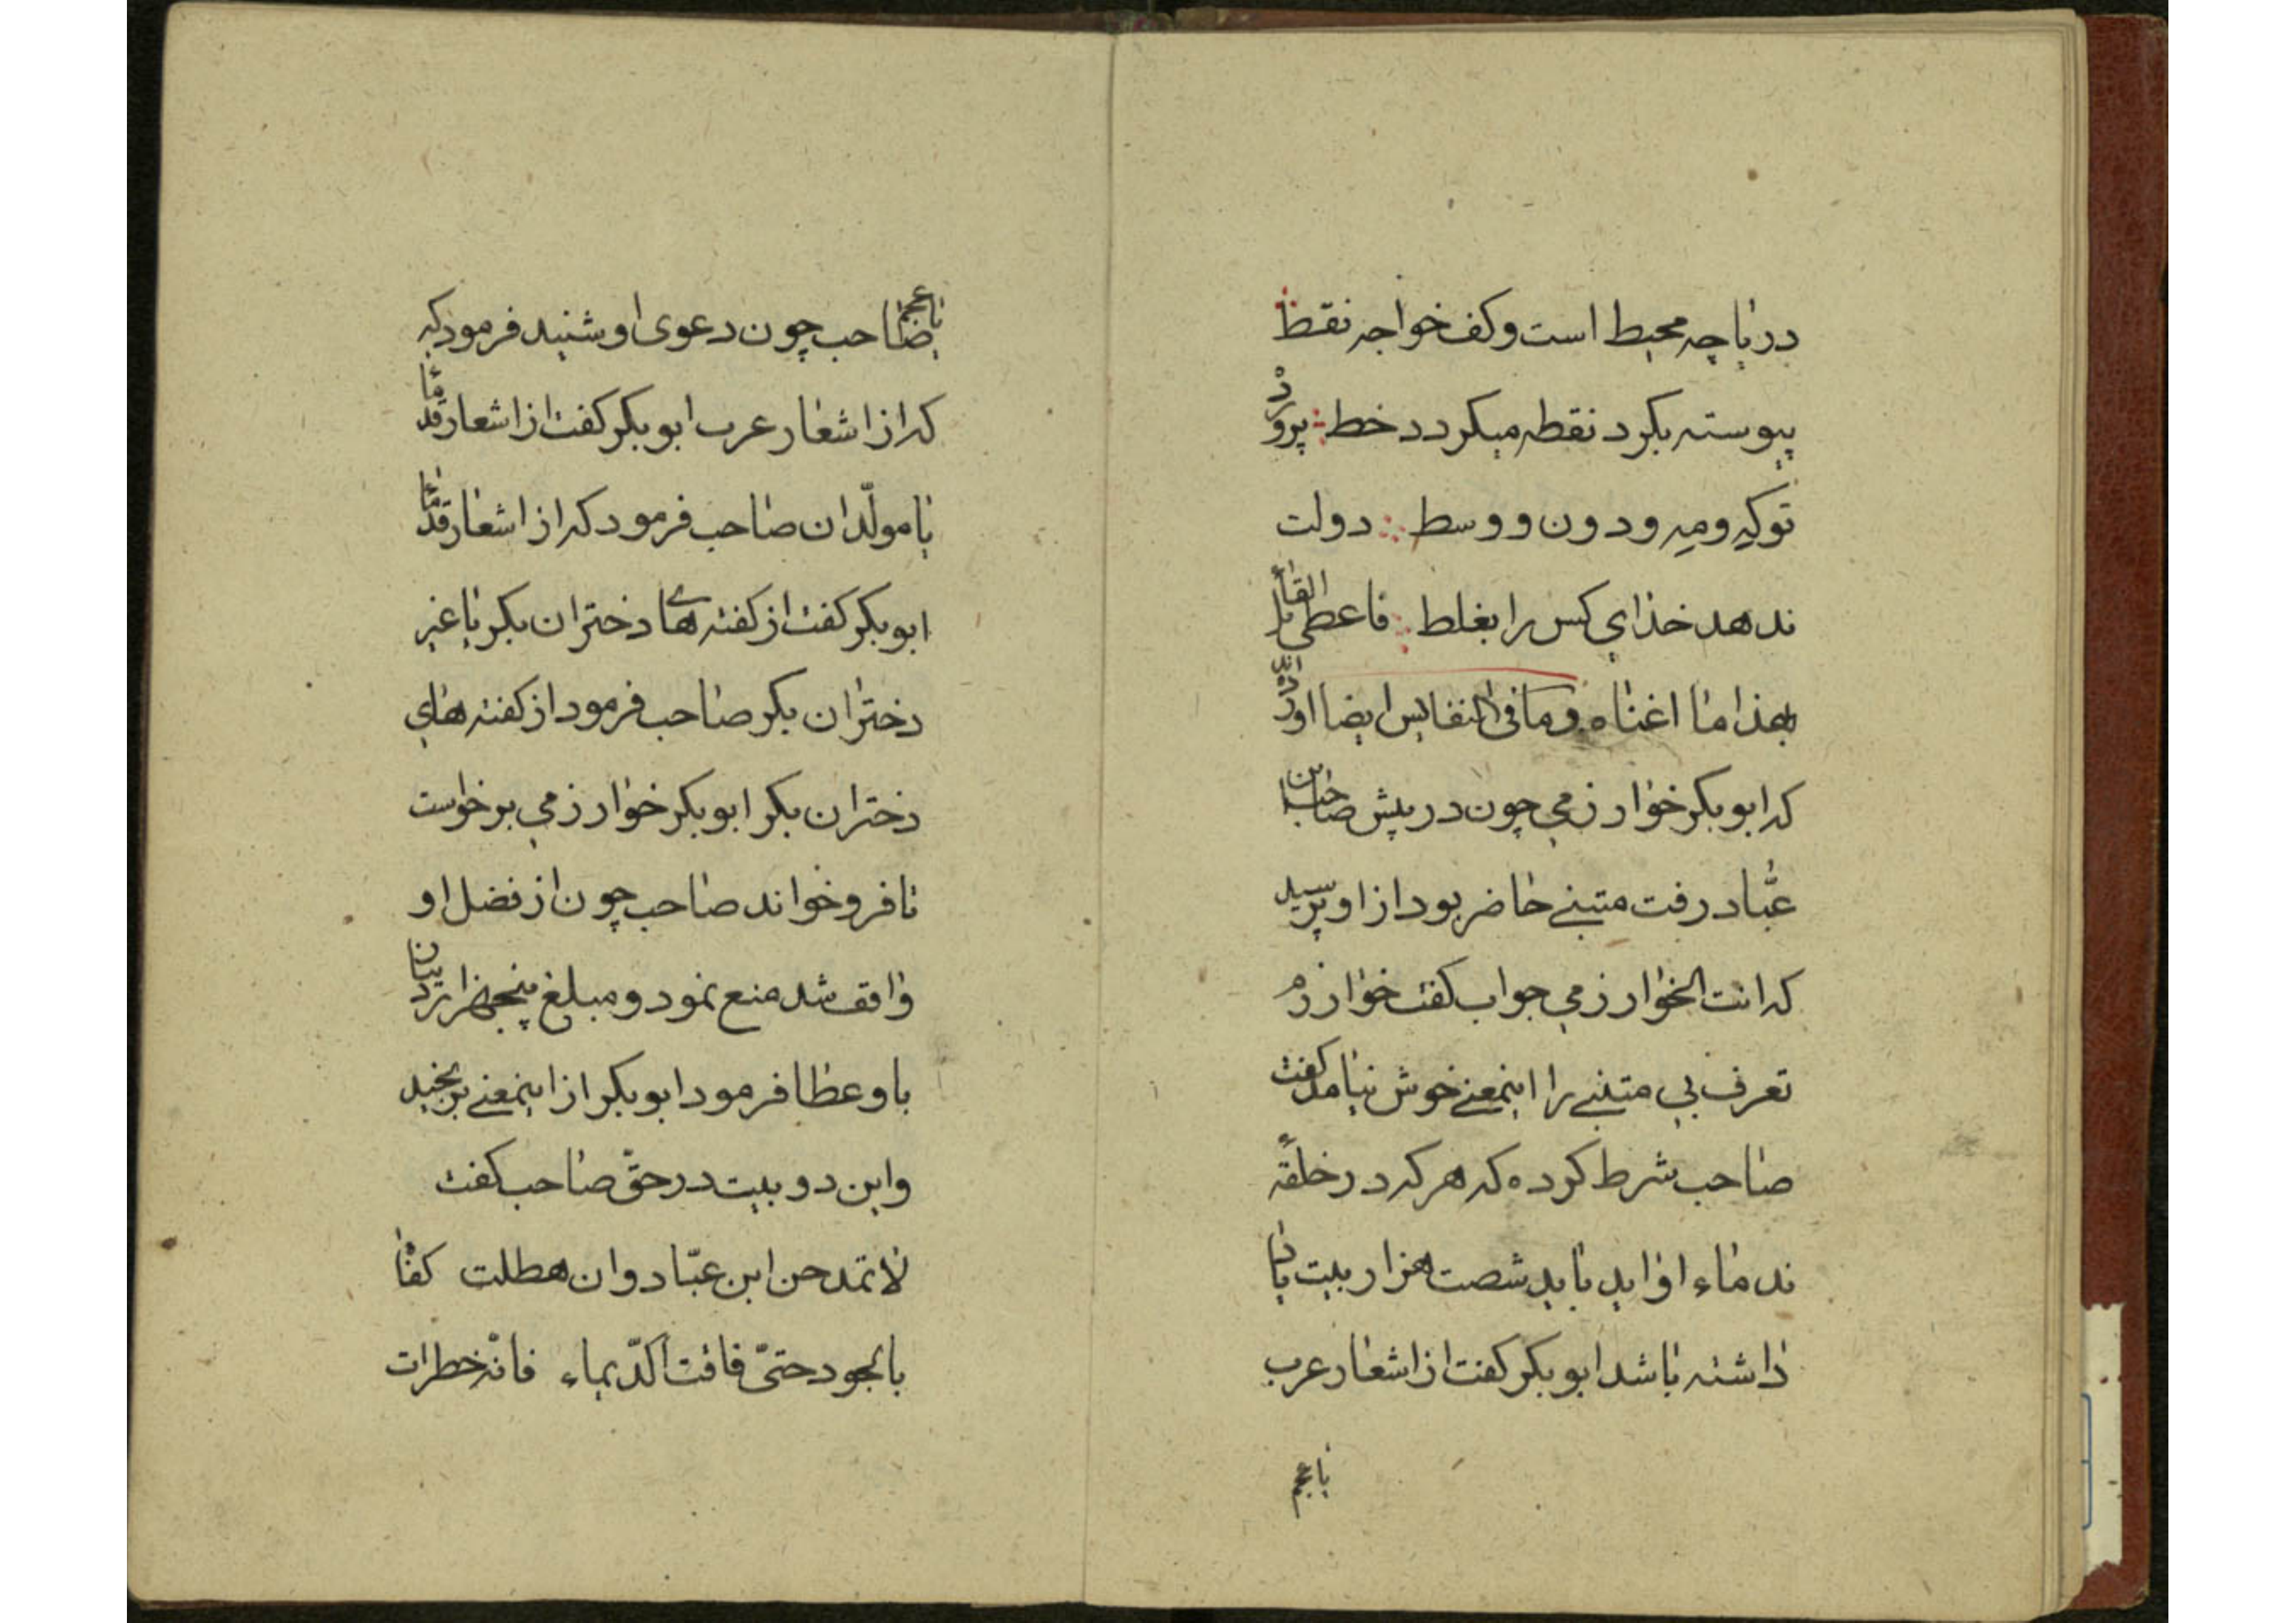 دریاچه محیط است و کف خواجه نقط
پیوسته بکرد نقطه میکردد خط پرورد
تو که و مه و دون و وسط دولت
ندهد خدای کس را بغلط فاعطی القا
بهذا ما اغناه و ما فی النفایس ایضا
که ابوبکر خوارزمی چون در پیش صاحب بن
عبّاد رفت متنبی حاضر بود از او پرسید
که انت الخوارزمی جواب کفت خوارزم
تعرف بی متنبی را اینمعنی خوش نیامد کفت
صاحب شرط کرده که هر که در حلقهٔ
ندماء او اید باید شصت هزار بیت یاد
داشته باشد ابوبکر کفت از اشعار عرب
یا عجم
یا عجم صاحب چون دعوی او شنید فرمود که
که از اشعار عرب ابوبکر کفت از اشعار قدما
یا مولّدان صاحب فرمود که از اشعار قدما
ابوبکر کفت از کفته های دختران بکر یا غیر
دختران بکر صاحب فرمود از کفته های
دختران بکر ابوبکر خوارزمی برخواست
تا فرو خواند صاحب چون از فضل او
واقف شد منع نمود و مبلغ پنجهزار
باو عطا فرمود ابوبکر از اینمعنی برنجید
و این دو بیت در حقّ صاحب کفت
لا تمدحن ابن عبّاد و ان هطلت کفّا
بالجود حتّی فاقت الدّیماء فانّه خطرات